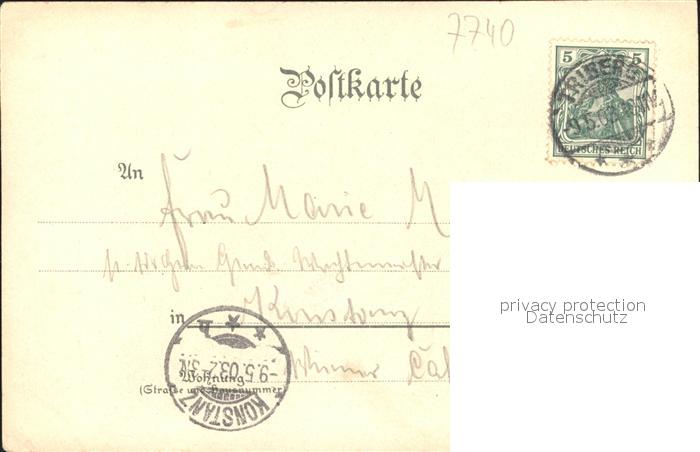 7740
5 5
DEUTSCHES REICH
TRIBERG
9.5.0
Postkarte
An
Frau Marie M
Wachtmeister
in Konstanz
KONSTANZ
-9.5.03.2-3N.
Wiener Ca
Wohnung
(Straße und Hausnummer)
privacy protection
Datenschutz